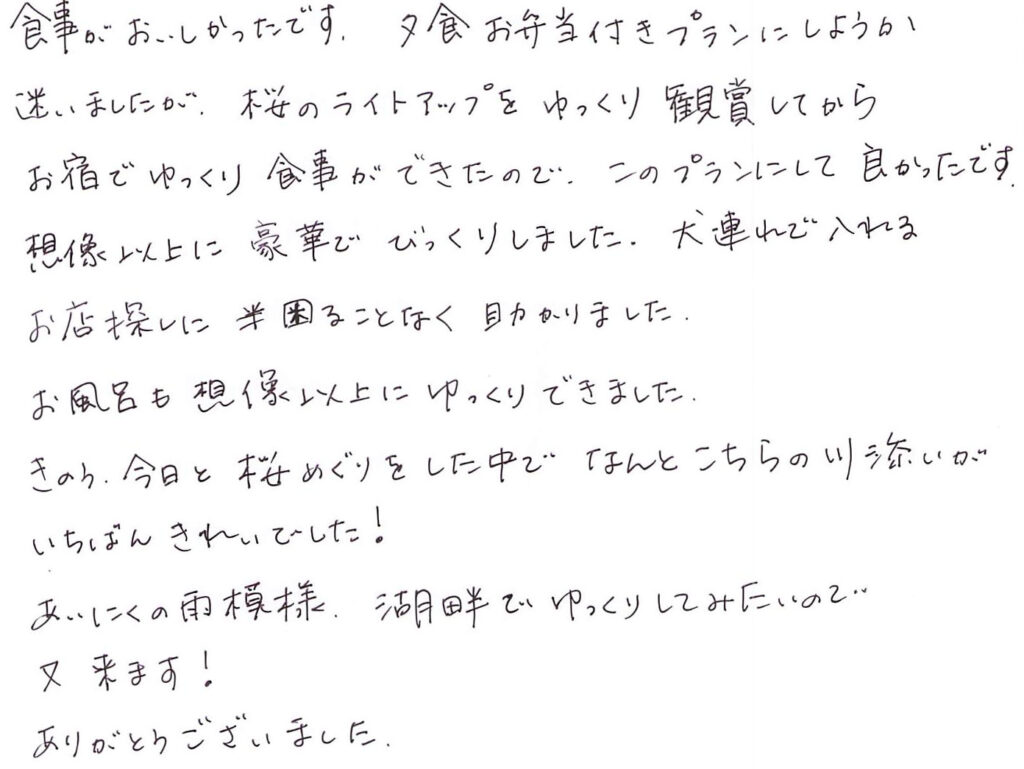 食事がおいしかったです. 夕食お弁当付きプランにしようか
迷いましたが. 桜のライトアップを ゆっくり 観賞してから
お宿でゆっくり 食事ができたので. このプランにして 良かったです.
想像以上に 豪華で びっくりしました. 犬連れで入れる
お店探しに 困ることなく 助かりました.
お風呂も 想像以上に ゆっくりできました.
きのう. 今日と 桜めぐりをした中で なんとこちらの川添いが
いちばん きれいでした!
あいにくの雨模様. 湖畔でゆっくりしてみたいので
又 来ます!
ありがとうございました.